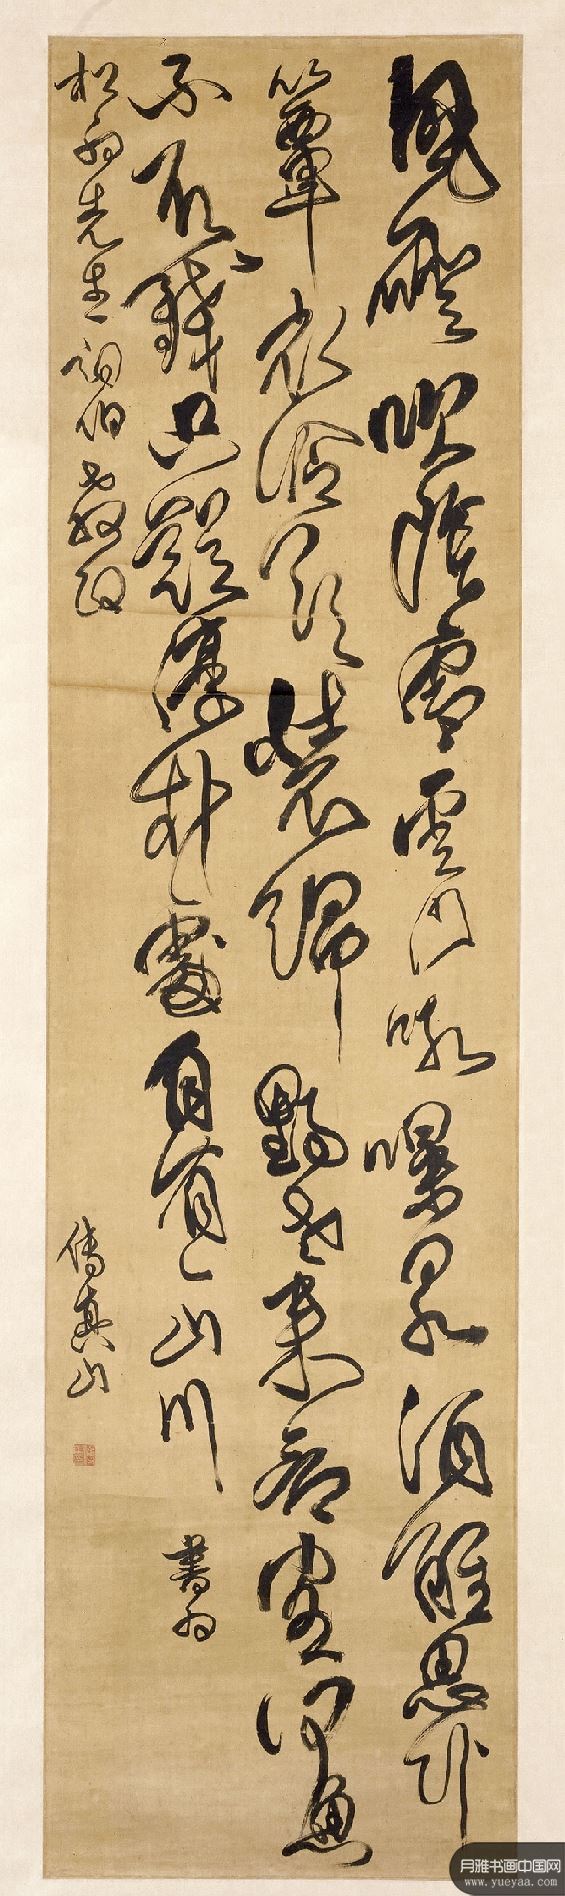 風磴吹陰雪雲門吼瀑泉酒醒思臥
簟衣冷欲裝綿野老來看客河魚
不取錢只疑淳朴處自有一山川 書為
松先生詞伯教政 傅真山
月雅书画中国网
www.yueyaa.com